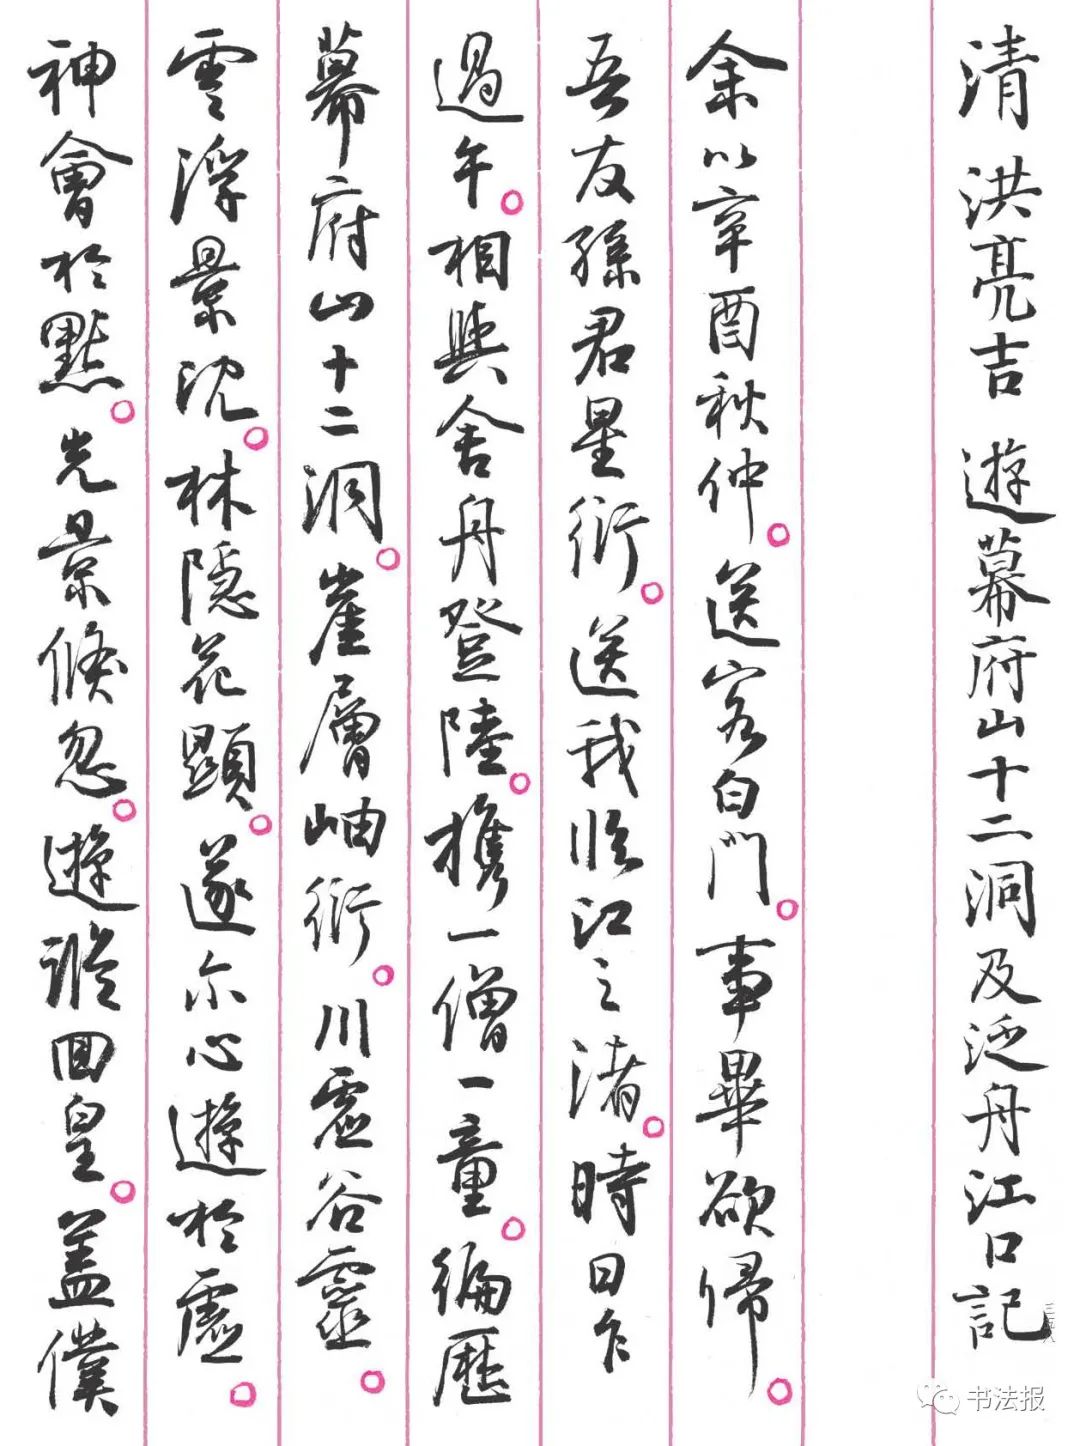 清 洪亮吉 遊幕府山十二洞及泛舟江口記
余以辛酉秋仲。送客白門。事畢欲歸。
吾友孫君星衍。送我臨江之渚。時日乍
過午。相與舍舟登陸。攜一僧一童。徧歷
幕府山十二洞。崖層岫衍。川虛谷靈。
雲浮景沈。林隱花顯。遂尔心遊於虛。
神會於默。光景倏忽。遊蹤回皇。蓋僕
书法报